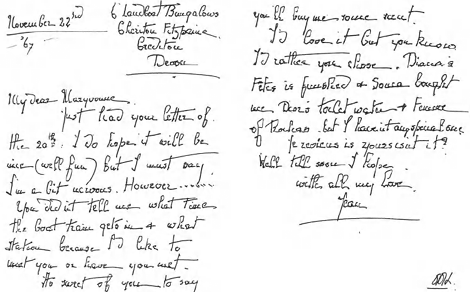 November 22nd
'67
6 Landboat Bungalows
Cheriton Fitzpaine
Crediton
Devon
My dear Maryvonne,
Just had your letter of
the 20th. I do hope it will be
nice (well fun) but I must say
I'm a bit nervous. However.......
You didn't tell me what time
the boat train gets in & what
station because I'd like to
meet you or have you met.
So sweet of you to say
you'll buy me some scent.
I'd love it but you know
I'd rather you chose. Diana's
is finished & Sonia bought
me Dior's toilet water &
of but I haven't opened one
is yours isn't it?
Well tell soon I hope.
with all my love.
Jean